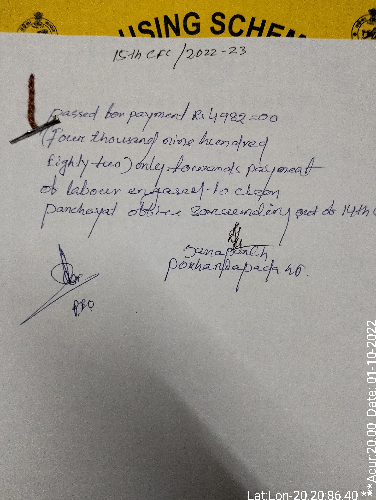 USING SCHEM
15th CFC/2022-23
Passed for payment Rs 4982=00
(Four thousand nine hundred
Eighty two) only towards payment
of labour engaged to clean
panchayat office surrounding
Sarapanch
Pokharipada GP.
PEO
Lat:Lon-20 20:86.40
***Acur:20.00 Date: 01-10-2022